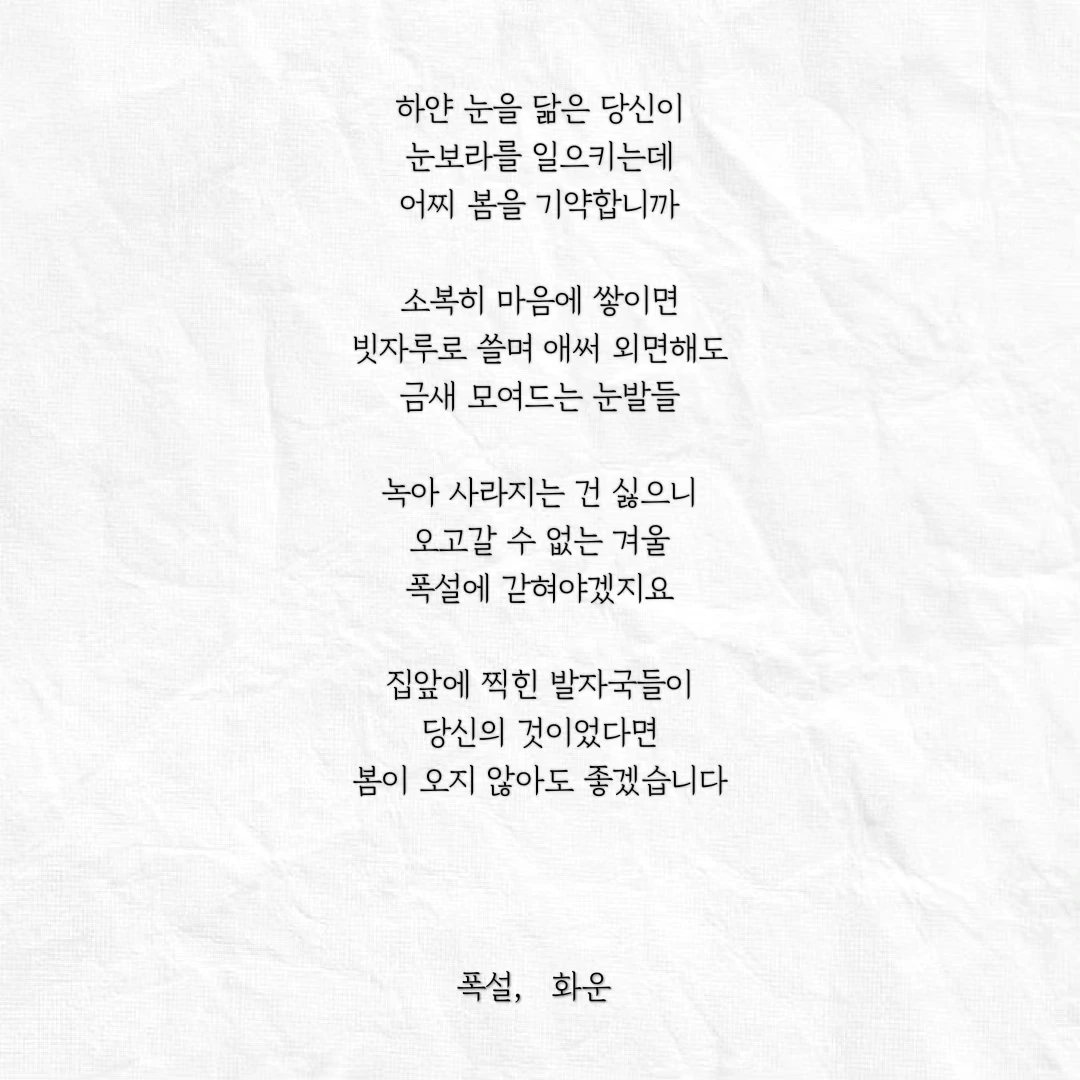 하얀 눈을 닮은 당신이
눈보라를 일으키는데
어찌 봄을 기약합니까
소복히 마음에 쌓이면
빗자루로 쓸며 애써 외면해도
금새 모여드는 눈발들
녹아 사라지는 건 싫으니
오고갈 수 없는 겨울
폭설에 갇혀야겠지요
집앞에 찍힌 발자국들이
당신의 것이었다면
봄이 오지 않아도 좋겠습니다
폭설, 화운